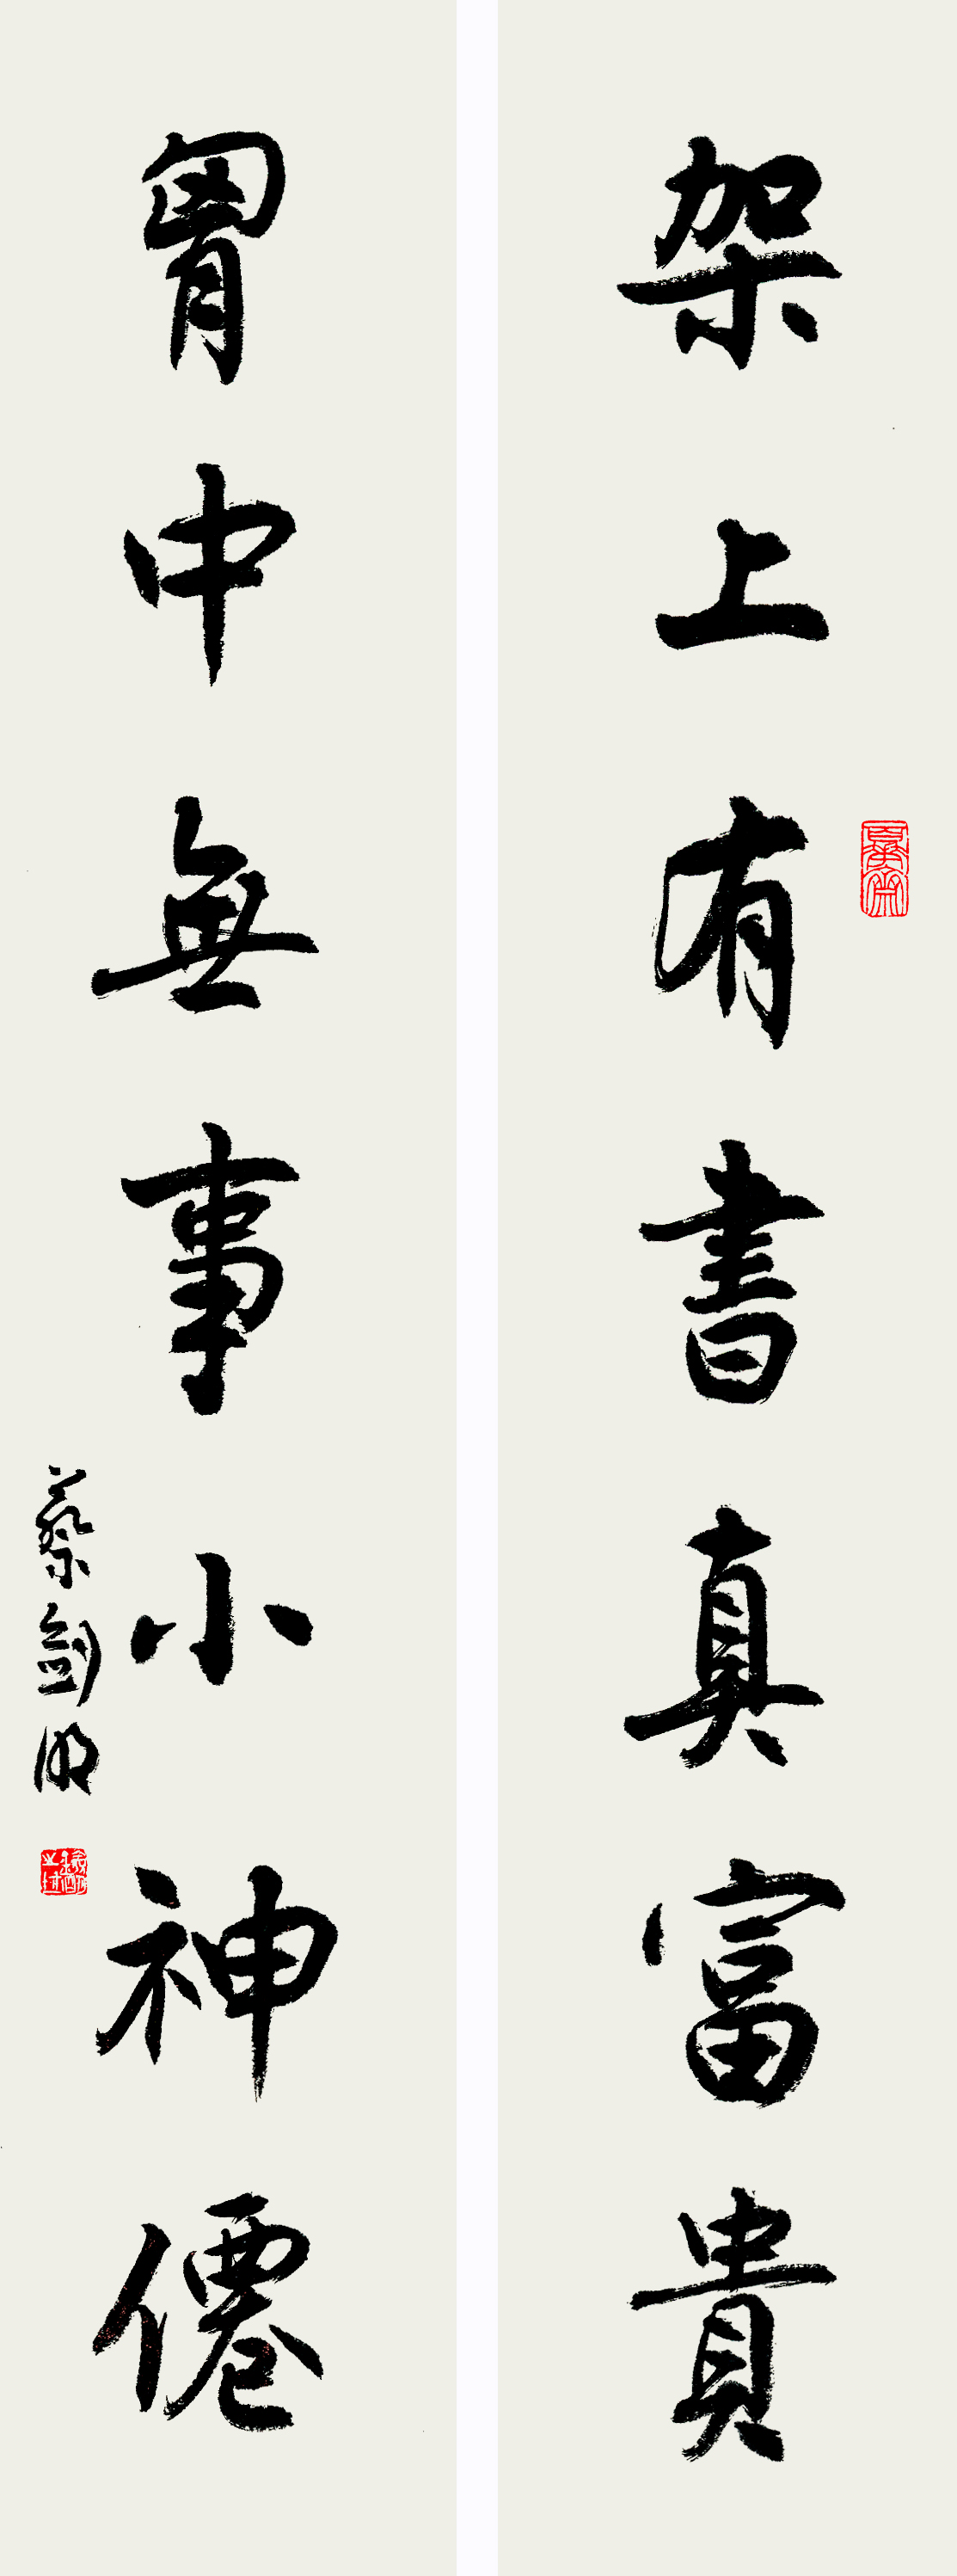 架上有書真富貴
胷中無事小神僊
蔡劍明